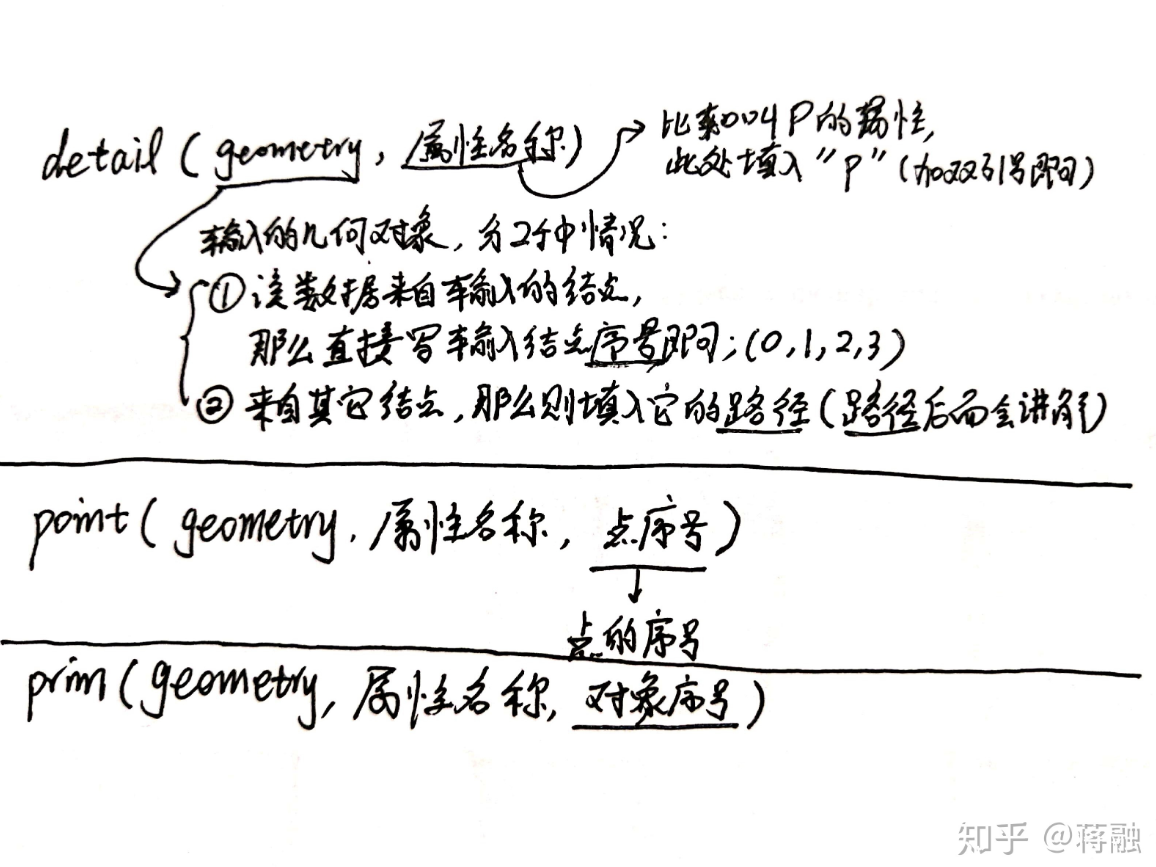 detail(geometry, 属性名称)
比如叫P的属性,
此处填入"P"(加双引号即可)
输入的几何对象, 分2种情况:
①该数据来自输入的结点,
那么直接写输入结点序号即可;(0,1,2,3)
②来自其它结点,那么则填入它的路径(路径后面会讲解)
point(geometry, 属性名称, 点序号)
点的序号
prim(geometry, 属性名称, 对象序号)
知乎 @蒋融